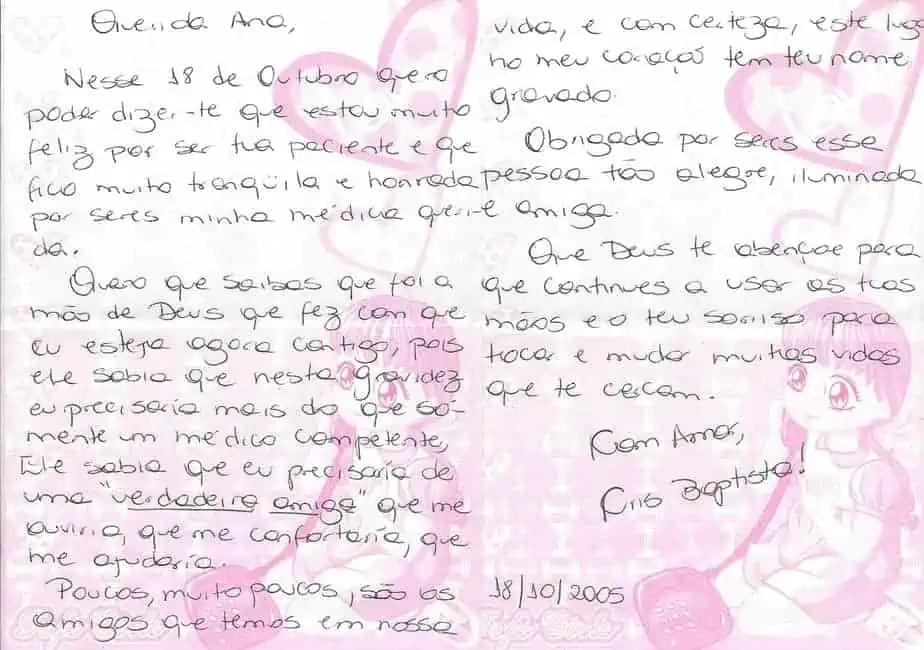 Querida Ana,
Nesse 18 de Outubro quero
poder dizer-te que estou muito
feliz por ser tua paciente e que
fico muito tranqüila e honrada
por seres minha médica queri-
da.
Quero que saibas que foi a
mão de Deus que fez com que
eu esteja agora contigo, pois
ele sabia que nesta gravidez
eu precisaria mais do que so-
mente um médico competente,
Ele sabia que eu precisaria de
uma "verdadeira amiga" que me
ouviria, que me confortaria, que
me ajudaria.
Poucos, muito poucos, são os
amigos que temos em nossa
vida, e com certeza, este lugar
no meu coração tem teu nome
gravado.
Obrigada por seres essa
pessoa tão alegre, iluminada
e amiga.
Que Deus te abençoe para
que continues a usar as tuas
mãos e o teu sorriso para
tocar e mudar muitas vidas
que te cercam.
Com Amor,
Cris Baptista!
18/10/2005